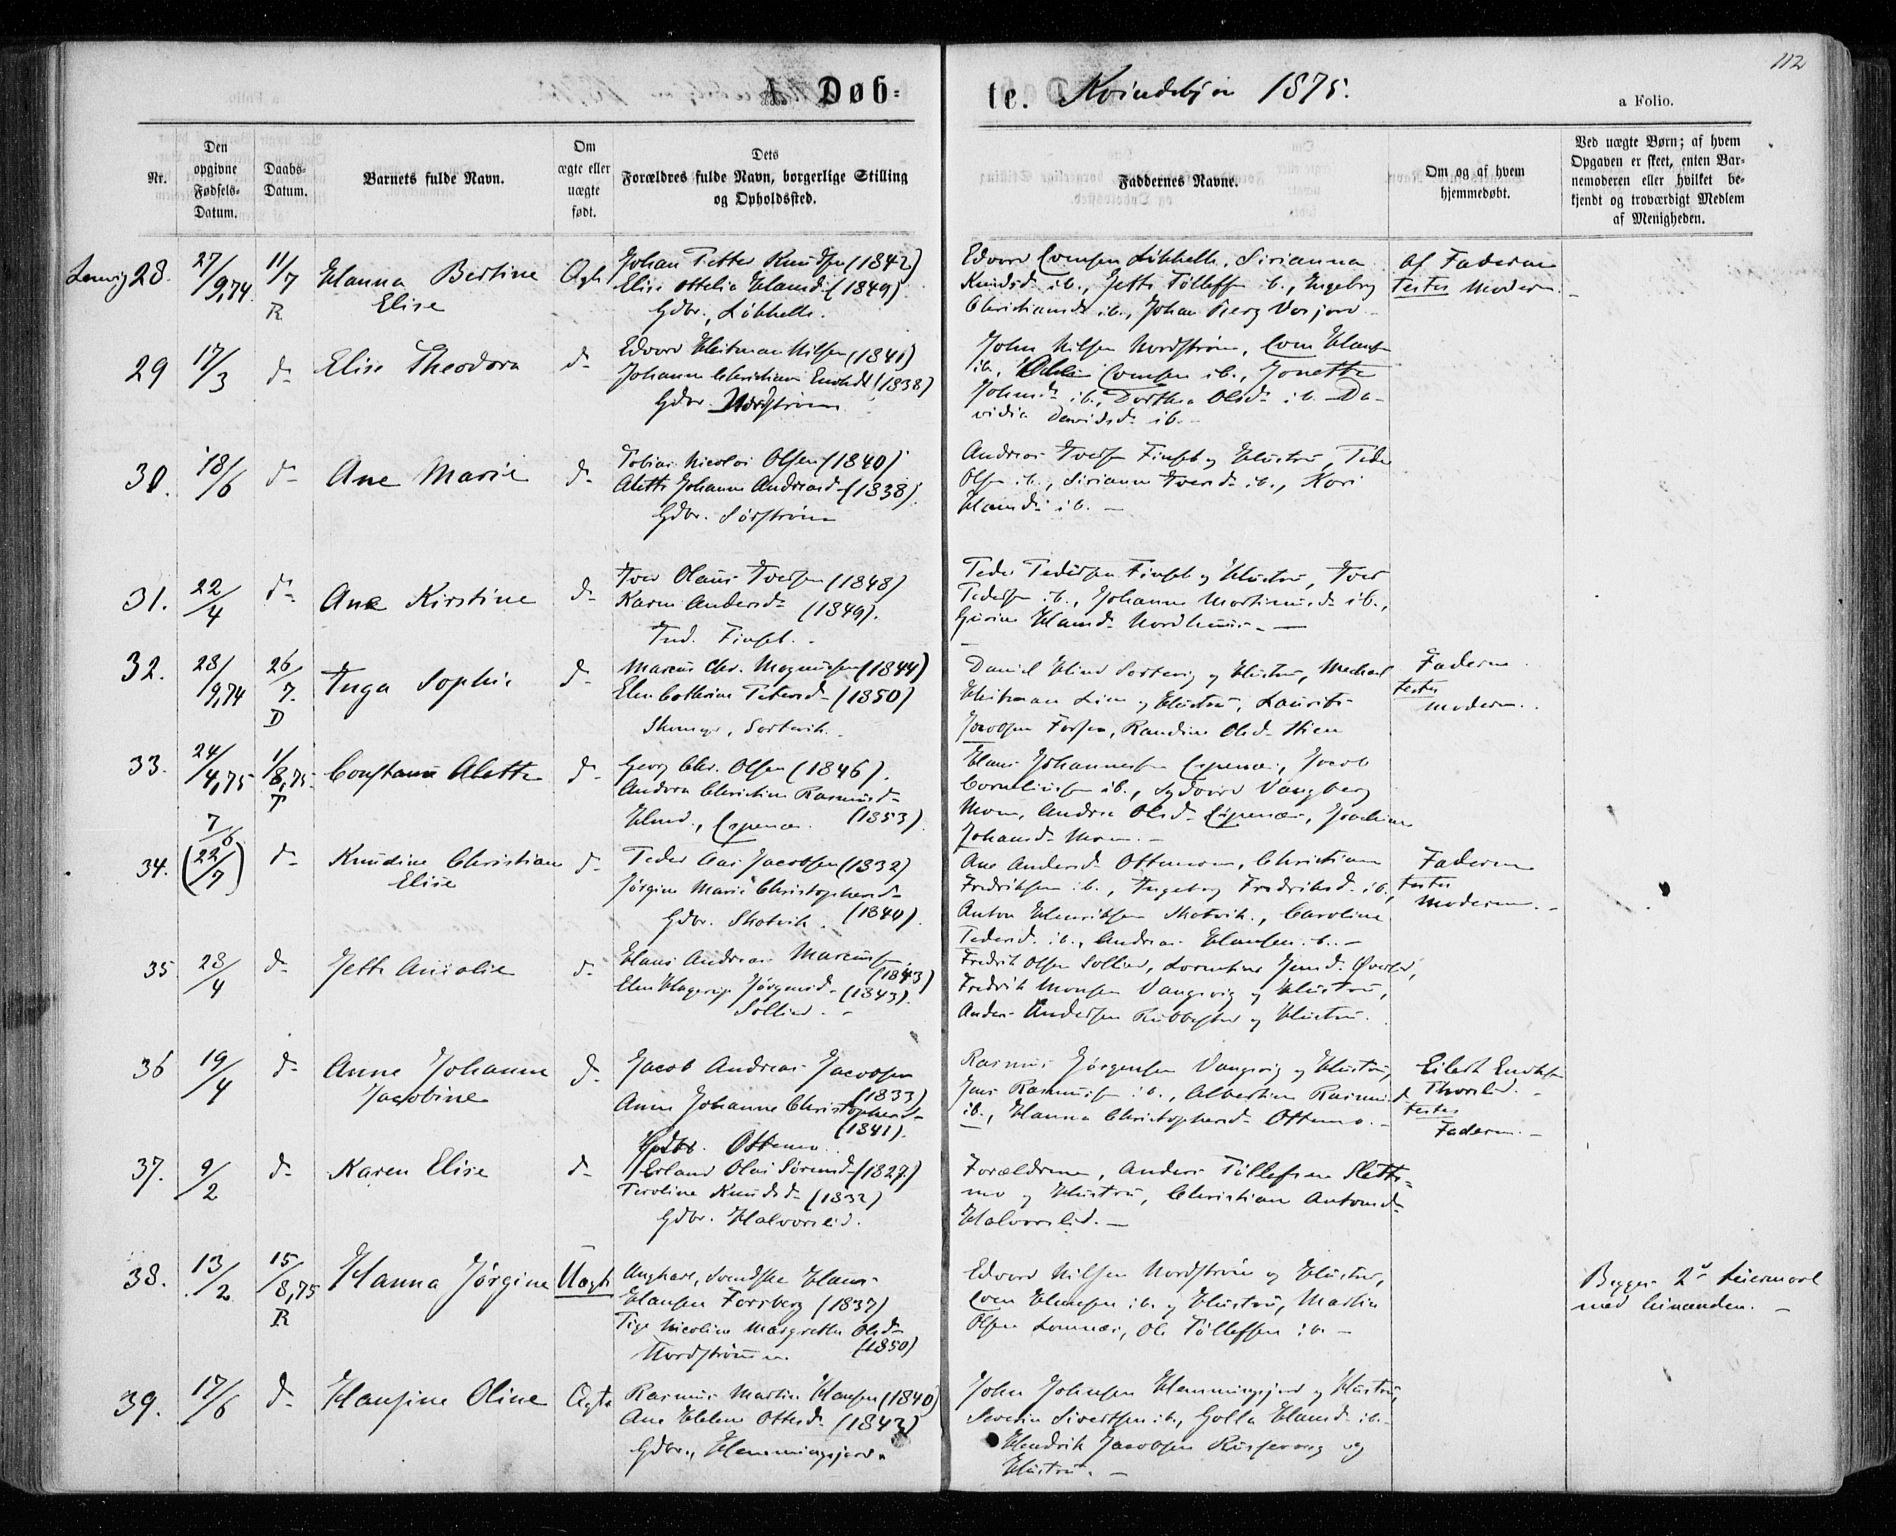 112
1. Døb=
te. Kvindekjøn 1875.
a Folio.
Nr.
Den opgivne Fødsels-Datum.
Daabs-Datum.
Barnets fulde Navn.
Om ægte eller uægte født.
Dets Forældres fulde Navn, borgerlige Stilling og Opholdssted.
Faddernes Navne.
Om og af hvem hjemmedøbt.
Ved uægte Børn; af hvem Opgaven er skeet, enten Barnemoderen eller hvilket bekjendt og troværdigt Medlem af Menigheden.
Lenvig 28. 27/9,74 11/7 R Hanna Bertine Elise Ægte
Johan Petter Knudsen (1842)
Elise Ottelia Hansd. (1849)
Gdbr., Løkhelle.
Edvard Løkhelle, Sirianna
Knudsd. ib., Jette Tollefsen ib., Ingeborg
Christiansd. ib., Johan
Af Faderen
Testes Moderen.
29 17/3 do Elise Theodora do
Edvard Heitman Nilsen (1841)
Johanna Christiane (1838)
Gdbr. Nordstrøm
John Nilsen Nordstrøm,
ib., ib., Jonette
Johnsd. ib., Dorthea Olsd. ib. Da-
vidia Davidsd. ib.
30. 18/6 do Ane Marie do
Tobias Nicolai Olsen (1840)
Alette Johanna Andreasd. (1838)
Gdbr. Sørstrøm
Andreas Iversen Finset og Hustru, Peder
Olsen ib., Sirianna Iversd. ib., Kari
Hansd. ib. —
31. 22/4 do Ane Kirstine do
Iver Olaus Iversen (1848)
Karen Andersd. (1849).
Ind. Finset.
Peder Pedersen Finset og Hustru, Iver
Pedersen ib., Johanna Mortinusd. ib.,
Hansd. —
32. 28/9,74 26/7. D Inga Sophie do
Marcus Chr. Magnussen (1844)
Elen Cathrine Petersd. (1850)
Sortevik.
Daniel Sortevig og Hustru, Mechael
Heitman og Hustru, Laurits
Jacobsen Forsen, Randine Olsd.
Faderen
testes
Moderen.
33. 24/4,75 1/8,75. T Constance Alette do
Georg Chr. Olsen (1846).
Andora Christine Rasmusd.
(1853).
Hans Johannesen Jacob
Corneliussen ib., Sydvard Vangberg
Moen, Andrea Olsd. Joachim
Johansd. Moen. —
34. 7/6 (22/7) do Knudine Christian Elise do
Peder Aas Jacobsen (1832)
Jørgine Marie Christophersd.
Gdbr. Skatvik. (1840).
Ane Andersd. Ottemoen, Christian
Fredriksen ib., Ingeborg Fredriksd. ib.,
Anton Henriksen Skatvik, Caroline
Pedersd. ib., Andreas Hansen ib. —
Faderen
testes
Moderen. —
35. 28/4 do Jette Amalie do
Hans Andreas Marcussen
(1843)
Elen Jørgensd. (1843).
Sollied. —
Fredrik Olsen Sollied, Jensd.
Fredrik Monsen Vangsvig og Hustru,
Anders Andersen og Hustru.
36 19/4 do Anne Johanna Jacobine do
Jacob Andreas Jacobsen
(1833)
Anne Johanne Christophersd.
(1841).
Gdbr. Ottemo.
Rasmus Jørgensen Vangsvig og Hustru,
Jens Rasmussen ib., Albertine Rasmusd.
ib., Hanna Christophersd. Ottemo. —
Eilert
testes
Faderen. —
37. 9/2 do Karen Elise do
Erland Olai Sørensd. (1827)
Peroline Knudsd. (1832)
Gdbr. Halvorslid.
Forældrene, Anders Tollefsen Slett=
mo og Hustru, Christian Antonsd.
Halvorslid. —
38. 13/2 15/8,75 R Hanna Jørgine Uægte
Ungkarl, Svendske Hans
Hansen Forsberg (1837)
Pige Nicoline Margrethe Olsd.
Nordstrømmen. (1850)
Edvard Nilsen Nordstrøm og Hustru,
Hansen ib. og Hustru, Martin
Olsen Ole Tollefsen ib. —
Begges 2d Leiermaal
med hinanden. —
39. 17/6 do Hansine Oline Ægte
Rasmus Martin Hansen (1840)
Ane Helene Ottersd. (1843)
Gdbr., Hemmingsjord.
John Johnsen Hemmingsjord og Hustru,
Severin Sivertsen ib., Golla Hansd. ib.
Hendrik Jacobsen og
Hustru. —